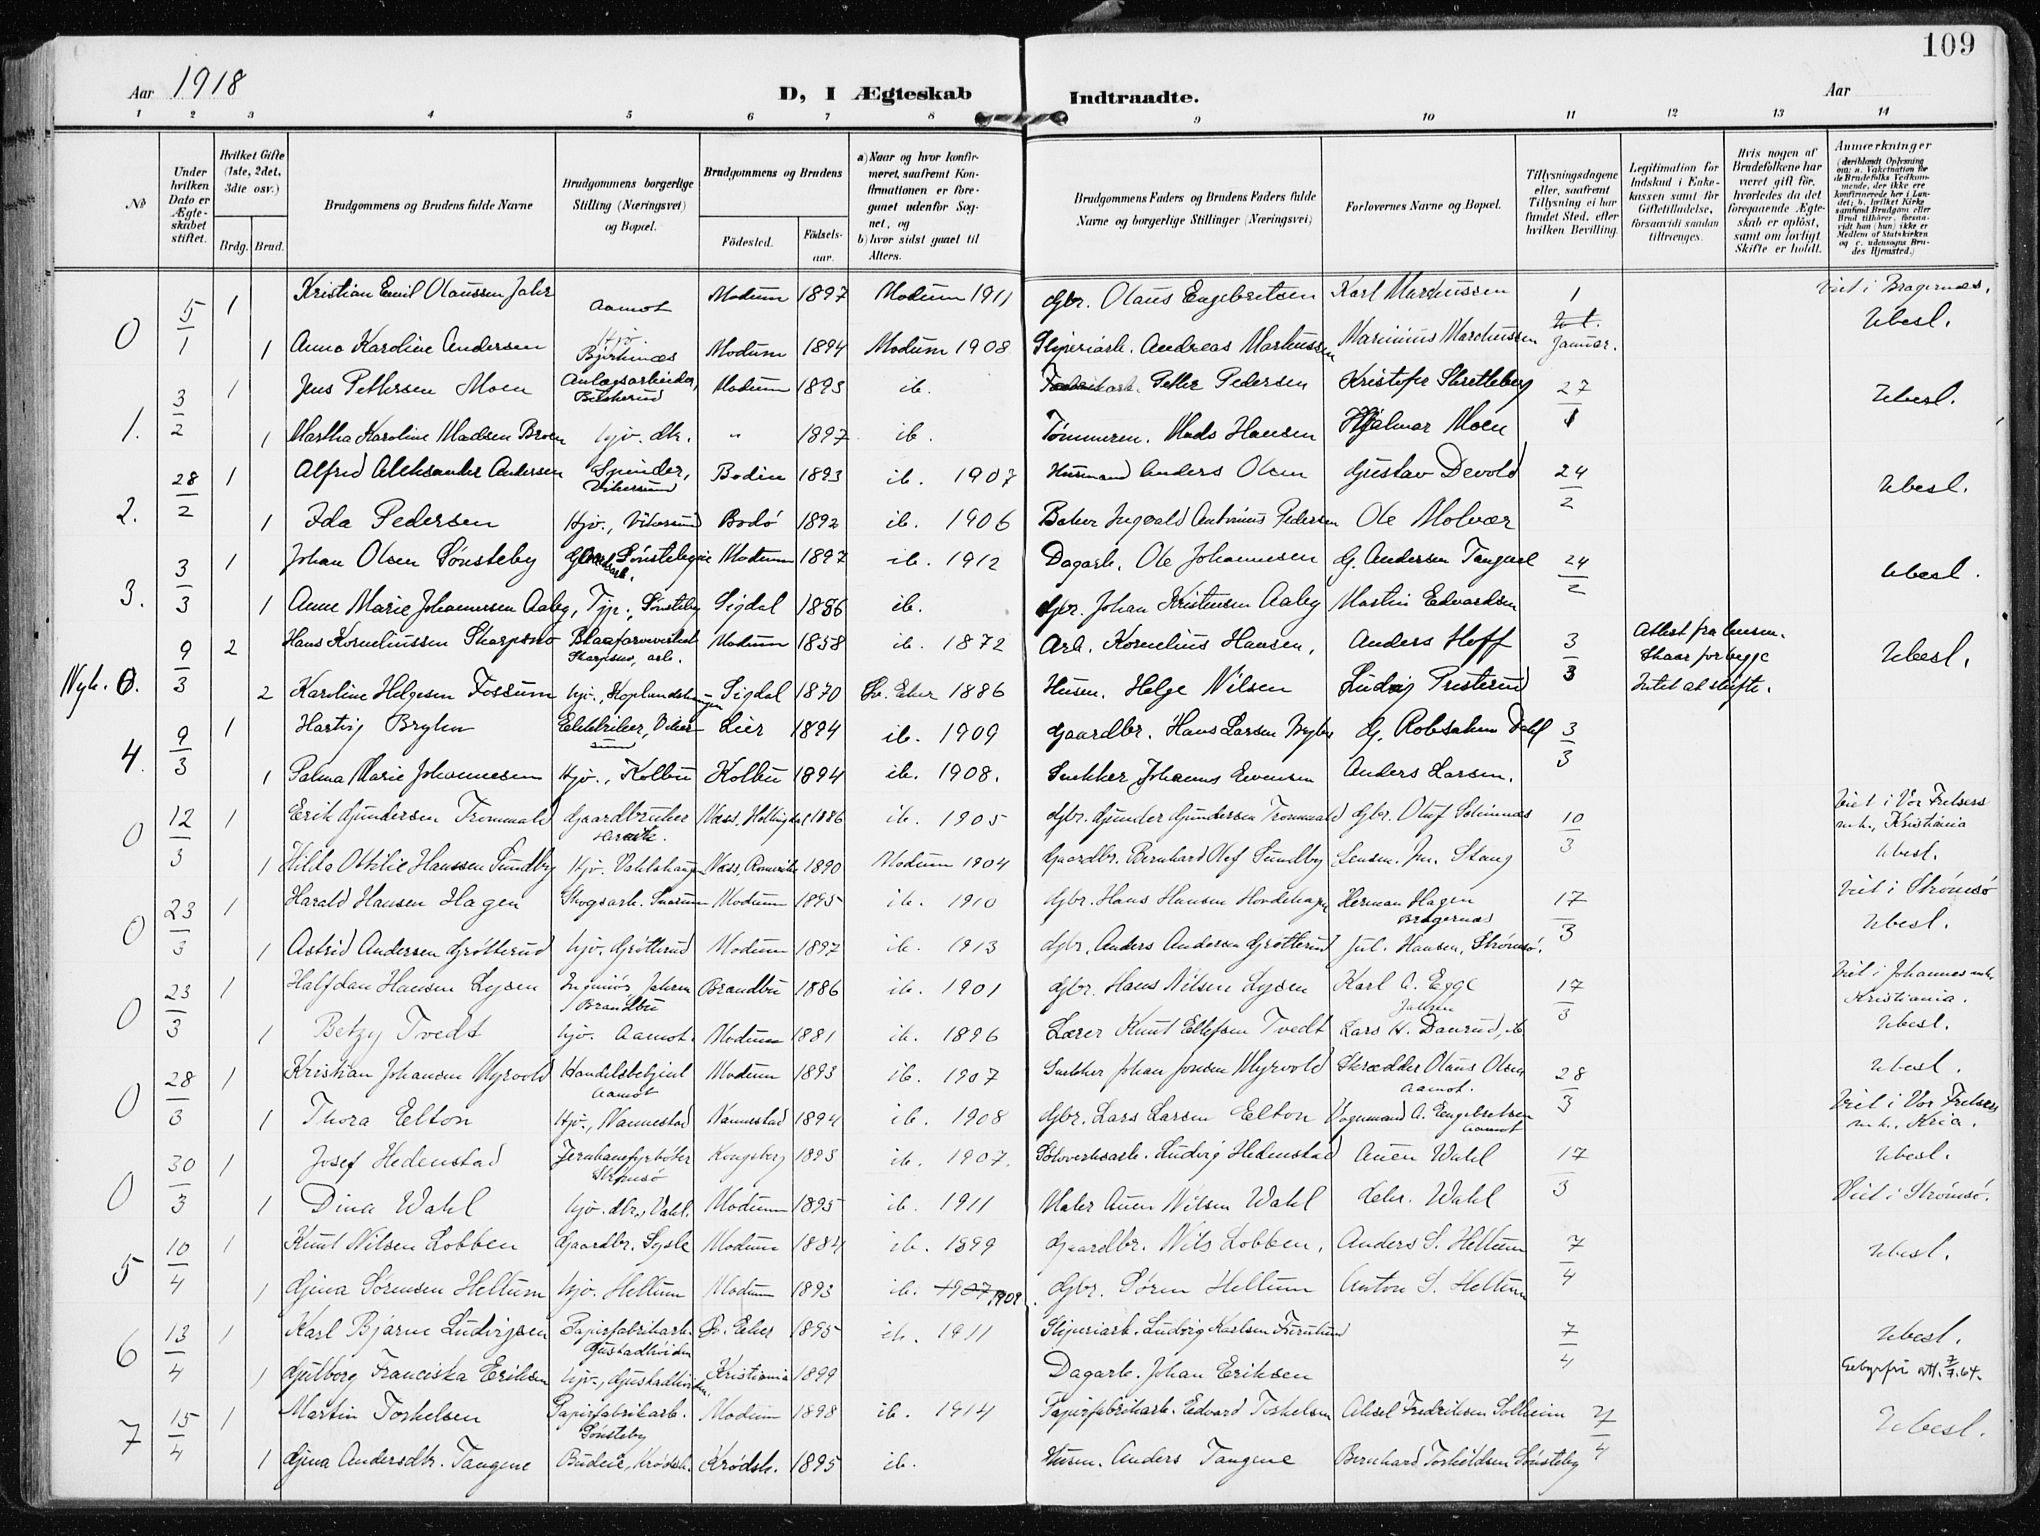 109
Aar 1918
D, I Ægteskab Indtraadte.
Aar
1 2 3 4 5 6 7 8 9 10 11 12 13 14
No
Under hvilken Dato er Ægteskabet stiftet.
Hvilket Gifte (1ste, 2det, 3die osv.)
Brdg. Brud.
Brudgommens og Brudens fulde Navne
Brudgommens borgerlige Stilling (Næringsvei) og Bopæl.
Brudgommens og Brudens
Födested.
Födselsaar.
a) Naar og hvor konfirmeret, saafremt Konfirmationen er foregaaet udenfor Sognet, og
b) hvor sidst gaaet til Alters.
Brudgommens Faders og Brudens Faders fulde Navne og borgerlige Stillinger (Næringsvei)
Forlovernes Navne og Bopæl.
Tillysningsdagene eller, saafremt Tillysning ei har fundet Sted, efter hvilken Bevilling.
Legitimation for Indskud i Enkekassen samt for Giftetilladelse, forsaavidt saadan tiltrænges.
Hvis nogen af Brudefolkene har været gift för, hvorledes da det foregaaende Ægteskab er oplöst, samt om lovligt Skifte er holdt.
Anmærkninger
(deriblandt Oplysning om: a. Vakcination for de Brudefolks Vedkommende, der ikke ere konfirmerede her i Landet; b. hvilket Kirkesamfund Brudgom eller Brud tilhörer, forsaavidt han (hun) ikke er Medlem af Statskirken og c. udensogns Brudes Hjemsted.)
0 5/1 1 Kristian Emil Olaussen Jahr Aamot Modum 1897 Modum 1911 Gbr. Olaus Engebretsen Karl Markussen 1 Januar. Viet i Bragernæs.
1 Anna Karoline Andersen Hjv. Bjerknæs Modum 1894 Modum 1908 Sliperiarb. Andreas Markussen Marinius Marcussen Ubesl.
1. 3/2 1 Jens Pettersen Moen Anlægsarbeider, Buskerud Modum 1893 ib. Fabrikarb. Petter Pedersen Kristofer Skretteberg 27/1 Ubesl.
1 Martha Karoline Madsen Broen Hjv. do. " 1897 ib. Tømmerm. Mads Hansen Hjalmar Moen
2. 28/2 1 Alfred Aleksander Andersen Spinder, Vikersund Bodin 1893 ib. 1907 Husmand Anders Olsen Gustav Devold 24/2 Ubesl.
1 Ida Pedersen Hjv., Vikersund Bodö 1892 ib. 1906 Baker Ingvald Antonius Pedersen Ole Molvær
3. 3/3 1 Johan Olsen Sønsteby Sønstebyeie Modum 1897 ib. 1912 Dagarb. Ole Johannesen G. Andersen Tangnes 24/2 Ubesl.
1 Anne Marie Johannesen Aaby, Tjp. Sønsteby Sigdal 1886 ib. Gbr. Johan Kristensen Aaby Martin Edvardsen
Nyk. 0. 9/3 2 Hans Korneliussen Skarpsno Blaafarveverket Skarpsno, arb. Modum 1858 ib. 1872 Arb. Kornelius Hansen, Anders Hoff 3/3 Attest fra lensm. Skaar for begge Ubesl.
2 Karoline Helgesen Fossum Hjv., Koplandshaugen Sigdal 1870 Ø. Eker 1886 Husm. Helge Nilsen Ludvig Presterud Intet at skifte.
4. 9/3 1 Hartvig Bryhn Elektriker, Vikersund Lier 1894 ib. 1909 Gaardbr. Hans Larsen Bryhn G. Robsahm Dahl 3/3
1 Palma Marie Johannesen Hjv., Kolbu Kolbu 1894 ib. 1908. Snekker Johannes Evensen Anders Larsen.
0 12/3 1 Erik Gundersen Trommald Gaardbruker Næss, Hallingdal 1886 ib. 1905 Gbr. Gunder Gundersen Trommald Gbr. Oluf Solimnæs 10/3 Viet i Vor Frelsers mh., Kristiania
1 Hilda Ottilie Hanssen Sundby Hjv. Vahlshaugen Næss, Romerike 1890 Modum 1904 Gaardbr. Bernhard Olof Sundby Lensm. Jn. Stang Ubesl.
0 23/3 1 Harald Hansen Hagen Skogsarb. Snarum Modum 1895 ib. 1910 Gbr. Hans Hansen Hovdehagen Herman Hagen Bragernæs 17/3 Viet i Strømsø Ubesl.
1 Astrid Andersen Grøtterud Hjv. Grøtterud Modum 1897 ib. 1913 Gbr. Anders Andersen Grøtterud Jul. Hansen, Strømsø.
0 23/3 1 Halfdan Hansen Lysen Ingeniør, Jahren Brandbu Brandbu 1886 ib. 1901 Gbr. Hans Nilsen Lysen Karl A. Egge Jahren 17/3 Viet i Johannes mh. Kristiania.
1 Betzy Tvedt Hjv. Aamot. Modum 1881 ib. 1896 Lærer Knut Ellefsen Tvedt Lars H. Daurud, ib Ubesl.
0 28/3 1 Kristian Johansen Myrvold Handelsbetjent Aamot Modum 1893 ib. 1907 Snekker Johan Jonsen Myrvold Skrædder Olaus Olsen Aamot. 28/3 Ubesl.
1 Thora Elton Hjv., Nannestad Nannestad 1894 ib. 1908 Gbr. Lars Larsen Elton Vognmand A. Engebretsen Aamot Viet i Vor Frelsers mh., Kria.
0 30/3 1 Josef Hedenstad Jernbanefyrbøter Strømsø Kongsberg 1893 ib. 1907. Sølvverksarb. Ludvig Hedenstad Auen Wahl 17/3 Ubesl.
1 Dina Wahl Hjv. do., Vahl. Modum 1895 ib. 1911 Maler Auen Nilsen Wahl Wahl Viet i Strømsø.
5 10/4 1 Knut Nilsen Lobben Gaardbr. Sysle Modum 1884 ib. 1899 Gaardbr. Nils Lobben, Anders S. Hellum 7/4 Ubesl.
1 Gina Sørensen Hellum Hjv. Hellum Modum 1893 ib. 1907 1909. Gbr. Søren Hellum Anton S. Hellum
6 13/4 1 Karl Bjarne Ludvigsen Papirfabrikarb. Gustadhviden Ø. Eker 1895 ib. 1911 Sliperiarb. Ludvig Karlsen Furulund 7/4 Ubesl.
1 Gulborg Franciska Eriksen Hjv., Gustadhviden. Kristiania 1899 Dagarb. Johan Eriksen Gebyrfri att. 7/7.64.
7 15/4 1 Martin Torkelsen Papirfabrikarb. Sønsteby Modum 1898 ib. 1914 Papirfabrikarb. Edvard Torkelsen Aksel Fredriksen Solheim 7/4 Ubesl.
1 Gina Andersdtr. Tangene Budeie, Krødsh. Krødsh. 1895 ib. Husm. Anders Tangene Bernhard Torkildsen Sønsteby